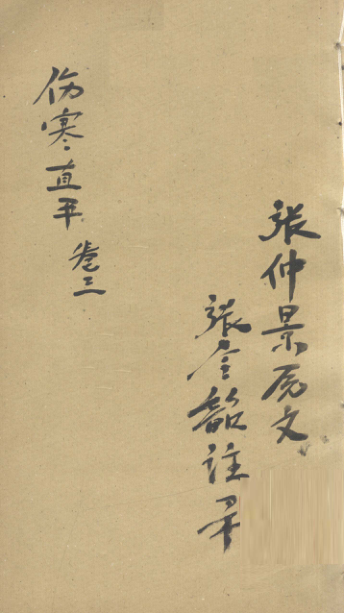 張仲景原文
張令韶註解
伤寒直解 卷三